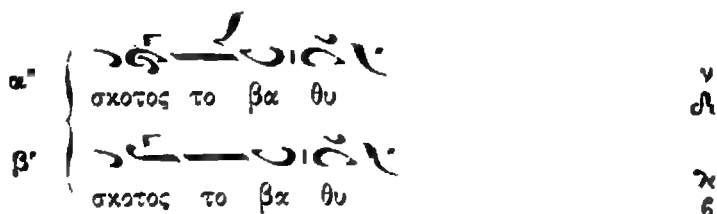 α" σκοτος το βα θυ
β' σκοτος το βα θυ